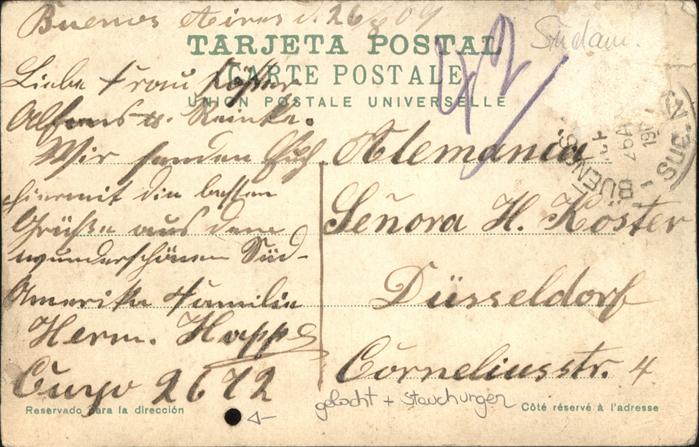 Buenos Aires d. 26/8 09
Südam.
TARJETA POSTAL
CARTE POSTALE
UNION POSTALE UNIVERSELLE
42
Liebe Frau Köster
Alfons u. Reinke.
Wir senden Euch
hiermit die besten
Grüße aus dem
wunderschönen Süd-
Amerika Familie
Herm. Happe
Cuyo 2672
Alemania
Señora H. Köster
Düsseldorf
Corneliusstr. 4
BUENOS
gelocht + Stauchungen
Reservado para la dirección
Côté réservé à l'adresse